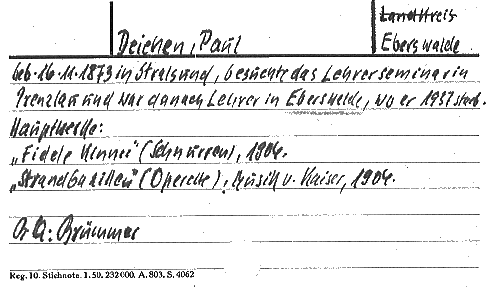 Landkreis
Deichen, Paul
Eberswalde
Geb. 16.11.1873 in Stralsund, besuchte das Lehrerseminar in
Prenzlau und war danach Lehrer in Eberswalde, wo er 1937 starb.
Hauptwerke:
„Fidele Kinner" (Schnurren), 1904.
„Strandbazillen" (Operette), Musik v. Kaiser, 1904.
Qu: Brümmer
Reg. 10. Stichnote. 1. 50. 232000. A. 803. S. 4062